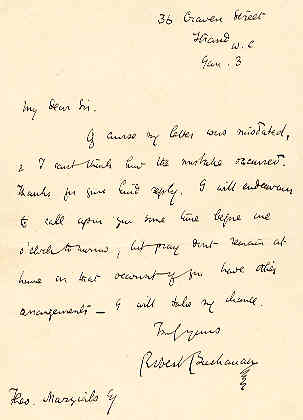 36 Craven Street
Strand W.C
Jan. 3
My Dear Sir.
Of course my letter was misdated,
& I can't think how the mistake occurred.
Thanks for your kind reply. I will endeavour
to call upon you some time before one
o'clock to-morrow, but pray don't remain at
home on that account if you have other
arrangements — I will take my chance.
Truly yours
Robert Buchanan
Theo. Marzials Esq